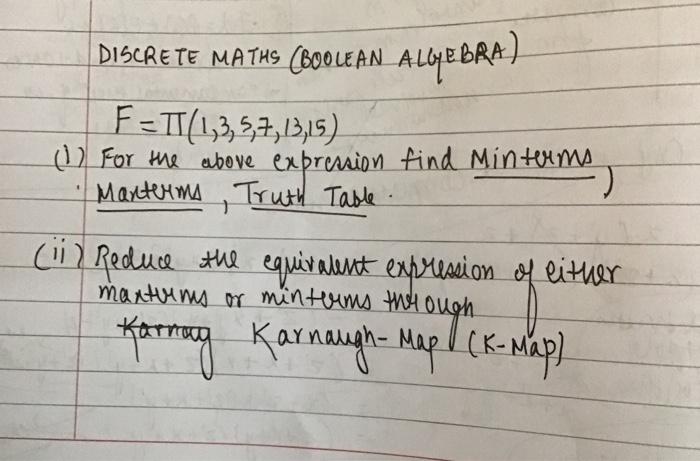 DISCRETE MATHS (BOOLEAN ALGEBRA)
F = π(1,3,5,7,13,15)
(i) For the above expression find Minterms,
Maxterms, Truth Table.
(ii) Reduce the equivalent expression of either
maxterms or minterms through
Karnaug Karnaugh-Map (K-Map)